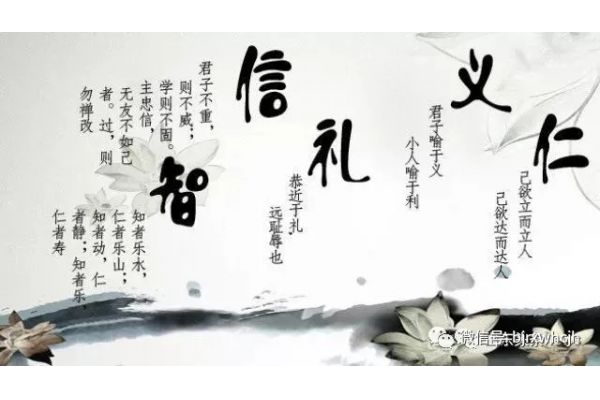 仁
己欲立而立人
己欲达而达人
义
君子喻于义
小人喻于利
礼
恭近于札
远耻辱也
信
君子不重，
则不威；
学则不固。
主忠信，
无友不如己
者。过，则
勿禅改
智
知者乐水，
仁者乐山；
知者动，仁
者静；知者乐，
仁者寿
微信号: bjrxwhcjh